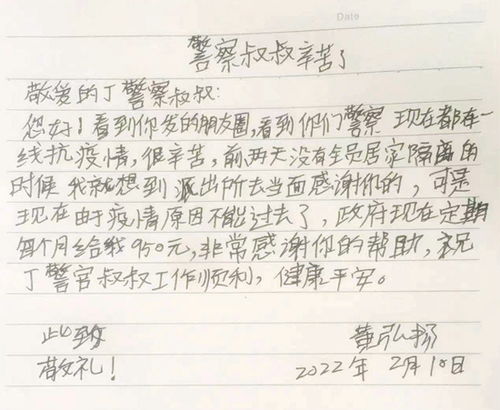 Date
警察叔叔辛苦了
敬爱的丁警察叔叔:
您好!看到你发的朋友圈,看到你们警察现在都在一
线抗疫情,很辛苦,前两天没有全员居家隔离的
时候我就想到派出所去当面感谢你的,可是
现在由于疫情原因不能过去了,政府现在定期
每个月给我950元,非常感谢你的帮助,祝
丁警官叔叔工作顺利,健康平安。
此致 黄弘扬
敬礼! 2022年2月18日